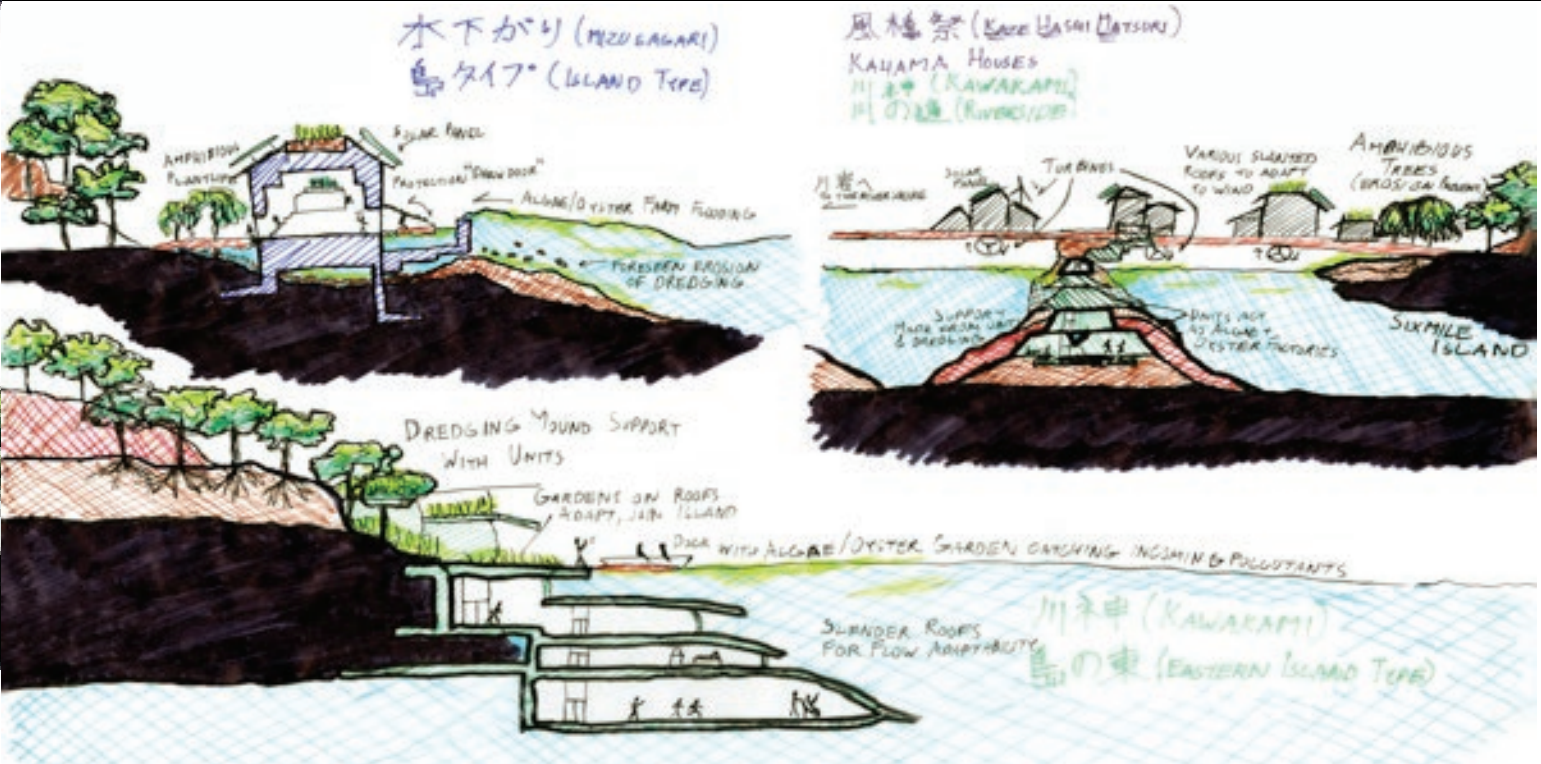 水下がり (MIZUSAGARI)
島タイプ (ISLAND TYPE)
SOLAR PANEL
AMPHIBIOUS
PLANTLIFE
PROTECTION
ALGAE/OYSTER FARM FLOODING
FORESEEN EROSION
OF DREDGING
風橋祭 (KAZE HASHI MATSURI)
HOUSES
川神 (KAWAKAMI)
(RIVERSIDE)
SOLAR
PANEL
TURBINES
VARIOUS SLANTED
ROOFS TO ADAPT
TO WIND
AMPHIBIOUS
TREES
(EROSION
SUPPORT
MADE FROM
& DREDGING
UNITS ACT
AS ALGAE +
OYSTER FACTORIES
SIXMILE
ISLAND
DREDGING MOUND SUPPORT
WITH UNITS
GARDENS ON ROOFS
ADAPT, JOIN ISLAND
DOCK WITH ALGAE/OYSTER GARDEN CATCHING INCOMING POLLUTANTS
SLENDER ROOFS
FOR FLOW ADAPTABILITY
川神 (KAWAKAMI)
島の東 (EASTERN ISLAND TYPE)